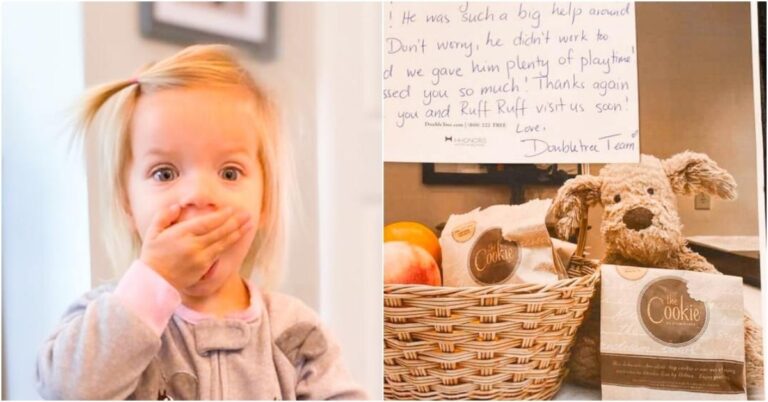 ! He was such a big help around
Don't worry, he didn't work too
d we gave him plenty of playtime!
ssed you so much! Thanks again
you and Ruff Ruff visit us soon!
Love,
Doubletree Team
HHONORS
the
Cookie
the
Cookie